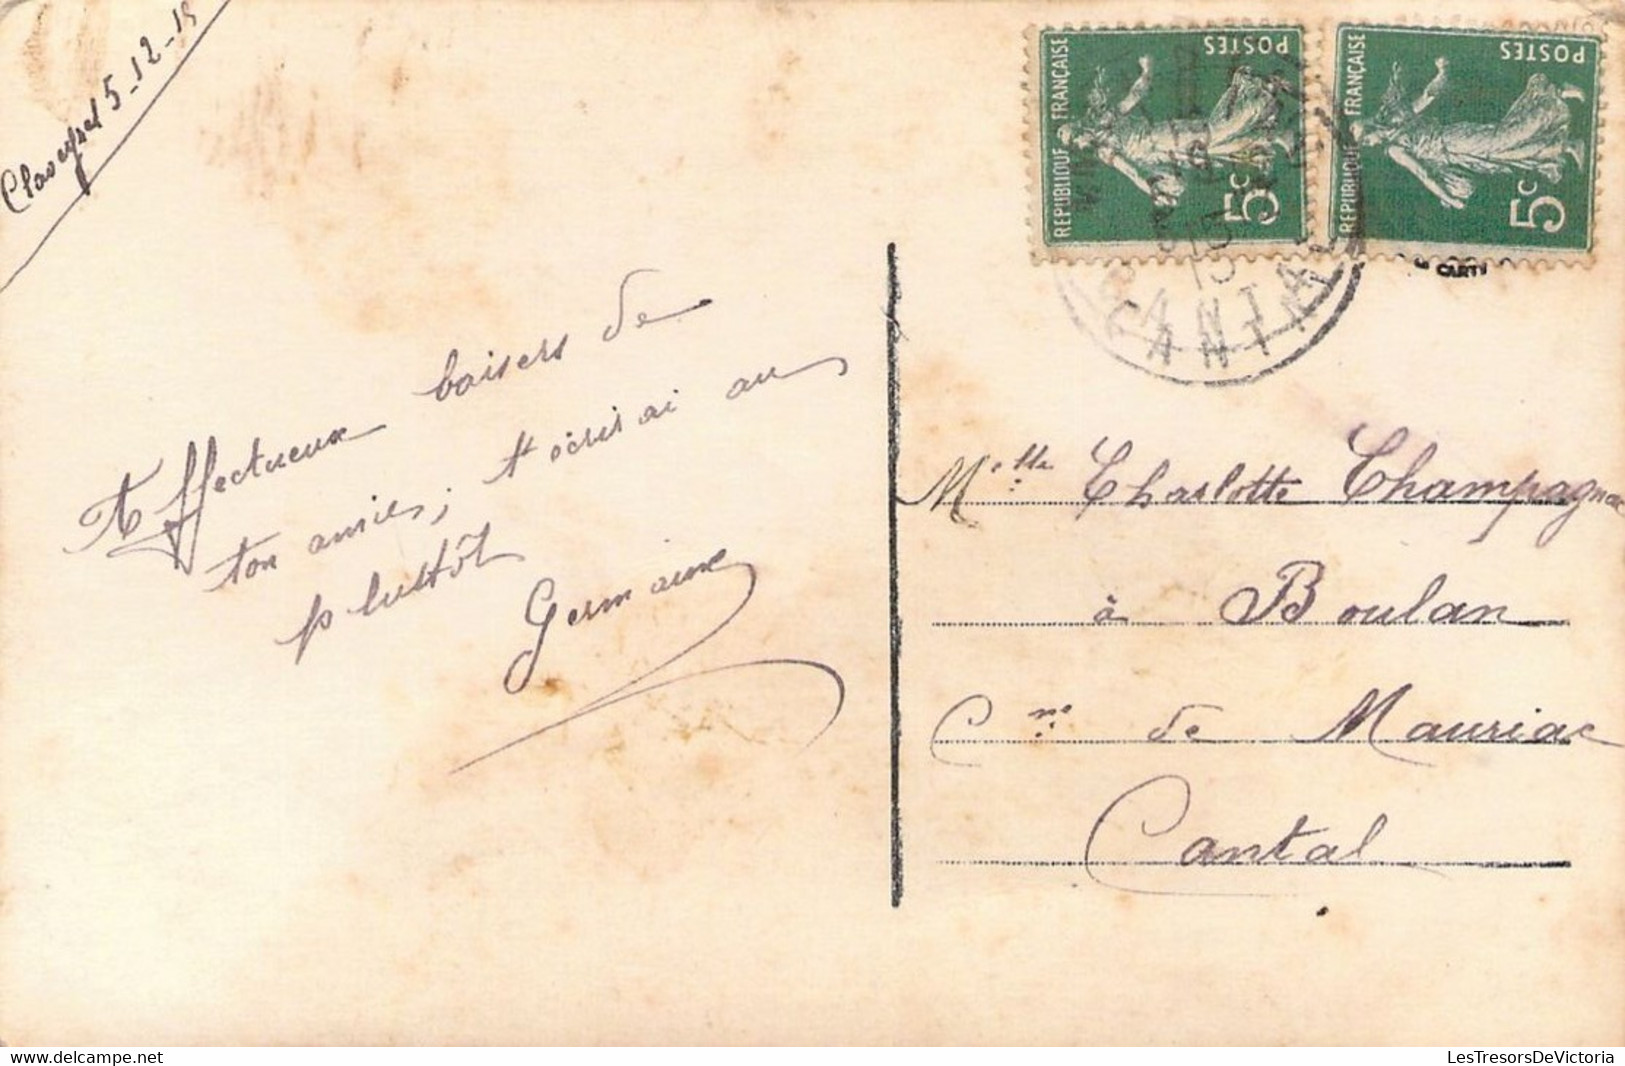 5-12-15
Affectueux baisers de
ton amies; t'écrirai au
plustôt
Germaine
REPUBLIQUE FRANÇAISE
POSTES
5c
REPUBLIQUE FRANÇAISE
POSTES
5c
CANTAL
CART
Melle Charlotte Champagnac
à Boulan
Cne de Mauriac
Cantal
www.delcampe.net
LesTresorsDeVictoria